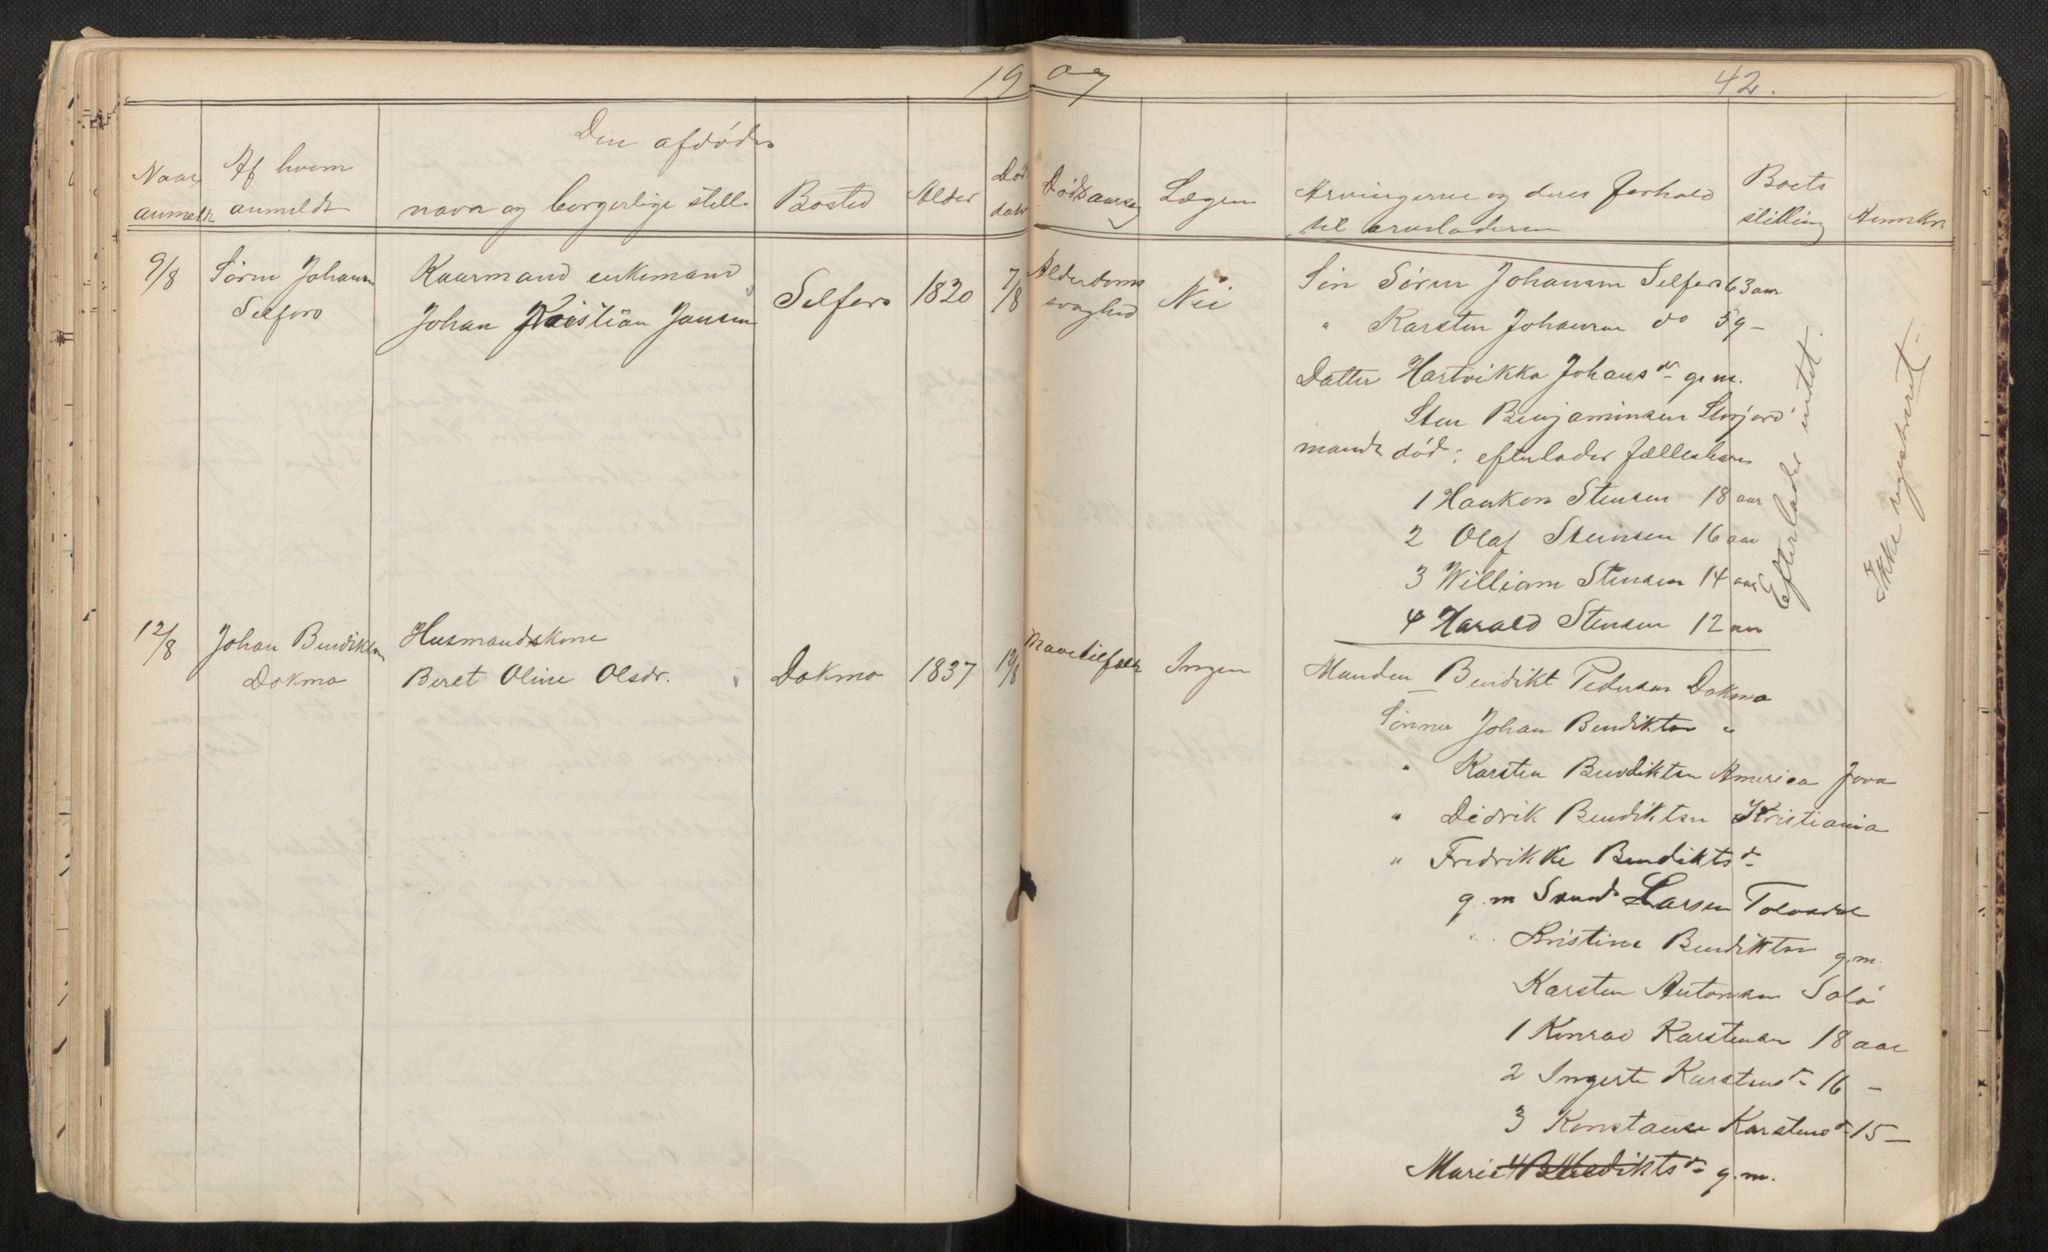 1907
42.
Den afdødes
Naar anmeldt
Af hvem anmeldt
navn og borgerlige still.
Bosted
Alder
Døds dato
Dødsaarsag
Lægen
Arvingerne og deres forhold
til arveladeren
Boets stilling
Anmkn
9/8
Sørin Johansen
Selfors
Kaarmand enkemand
Johan Kristian Jansen
Selfors
1820
7/8
Alderdoms
svaghed
Nei
Søn Sørin Johansen Selfors 63 aar
" Karsten Johansen do 59 -
Datter Hartvikka Johansdr g. m.
Sten Benjaminsen Storjord
manden død: efterlader fælles barn
1 Haakon Stensen 18 aar
2 Olaf Steinsen 16 aar
3 William Stensen 14 aar
4 Harald Stensen 12 aar
Efterlader intet.
Ikke registreret
12/8
Johan Bendiktsen
Dokmo
Husmandskone
Beret Oline Olsdr.
Dokmo
1837
12/8
Mavetilfælde
Ingen
Manden Bendikt Pedersen Dokmo
Sønner Johan Bendiktsn "
" Karsten Bendiktsn America Jova
" Didrik Bendiktsn Kristiania
" Fredrikke Bendiktsdr
g. m Larsen
Kristine Bendiktsn g. m.
Karsten Antonsen
1 Konrad Karstensen 18 aar
2 Ingerte Karstensdr 16 -
3 Konstanse Karstensdr 15 -
Marie Bendiktsdr g. m.